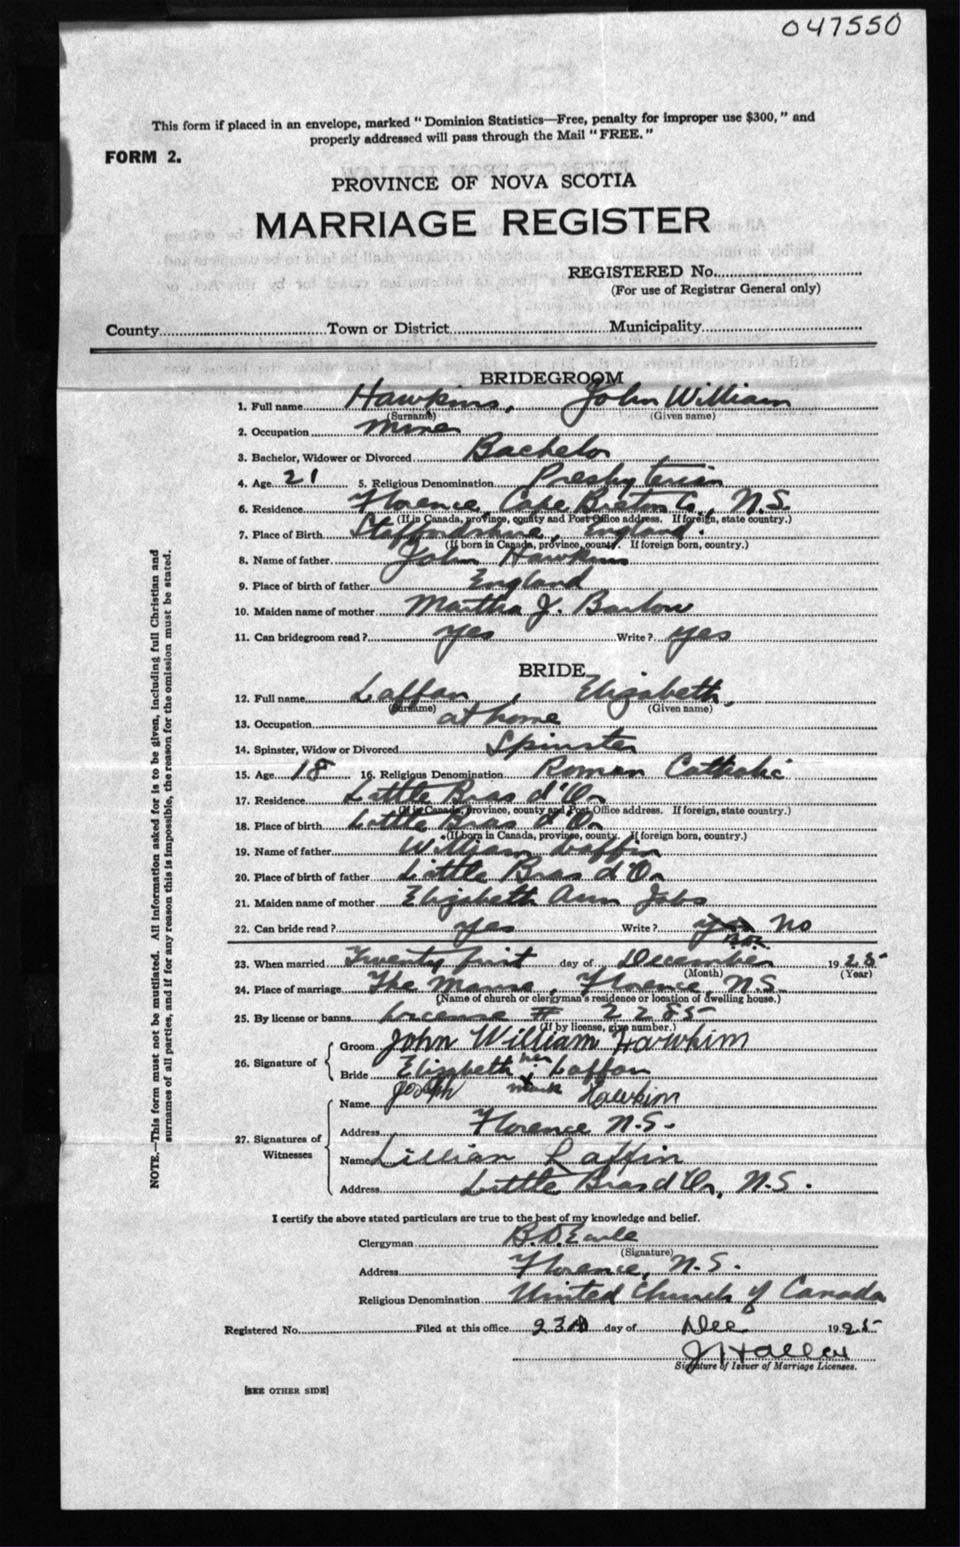 047550
This form if placed in an envelope, marked "Dominion Statistics—Free, penalty for improper use $300," and
properly addressed will pass through the Mail "FREE."
FORM 2.
PROVINCE OF NOVA SCOTIA
MARRIAGE REGISTER
REGISTERED No.
(For use of Registrar General only)
County Town or District Municipality
BRIDEGROOM
1. Full name Hawkins, John William
(Surname) (Given name)
2. Occupation Miner
3. Bachelor, Widower or Divorced Bachelor
4. Age 21 5. Religious Denomination Presbyterian
6. Residence Florence, Cape Breton Co., N.S.
(If in Canada, province, county and Post Office address. If foreign, state country.)
7. Place of Birth Staffordshire, England.
(If born in Canada, province, county. If foreign born, country.)
8. Name of father John Hawkins
9. Place of birth of father England
10. Maiden name of mother Martha J. Barlow
11. Can bridegroom read? yes Write? yes
BRIDE
12. Full name Laffan, Elizabeth
(Surname) (Given name)
13. Occupation at home
14. Spinster, Widow or Divorced Spinster
15. Age 18 16. Religious Denomination Roman Catholic
17. Residence Little Bras d'Or
(If in Canada, province, county and Post Office address. If foreign, state country.)
18. Place of birth Little Bras d'Or
(If born in Canada, province, county. If foreign born, country.)
19. Name of father William Laffin
20. Place of birth of father Little Bras d'Or
21. Maiden name of mother Elizabeth Ann Jobs
22. Can bride read? yes Write? No
23. When married Twenty first day of December 1925
(Month) (Year)
24. Place of marriage The Manse, Florence, N.S.
(Name of church or clergyman's residence or location of dwelling house.)
25. By license or banns License # 2285
(If by license, give number.)
26. Signature of
Groom John William Hawkins
Bride Elizabeth her Laffan
mark
27. Signatures of Witnesses
Name Joseph Hawkins
Address Florence N.S.
Name Lillian Laffin
Address Little Bras d'Or, N.S.
I certify the above stated particulars are true to the best of my knowledge and belief.
Clergyman B.D Earle
(Signature)
Address Florence, N.S.
Religious Denomination United Church of Canada
Registered No. Filed at this office 23rd day of Dec 1925
Signature of Issuer of Marriage Licenses.
[SEE OTHER SIDE]
NOTE.—This form must not be mutilated. All information asked for is to be given, including full Christian and
surnames of all parties, and if for any reason this is impossible, the reason for the omission must be stated.